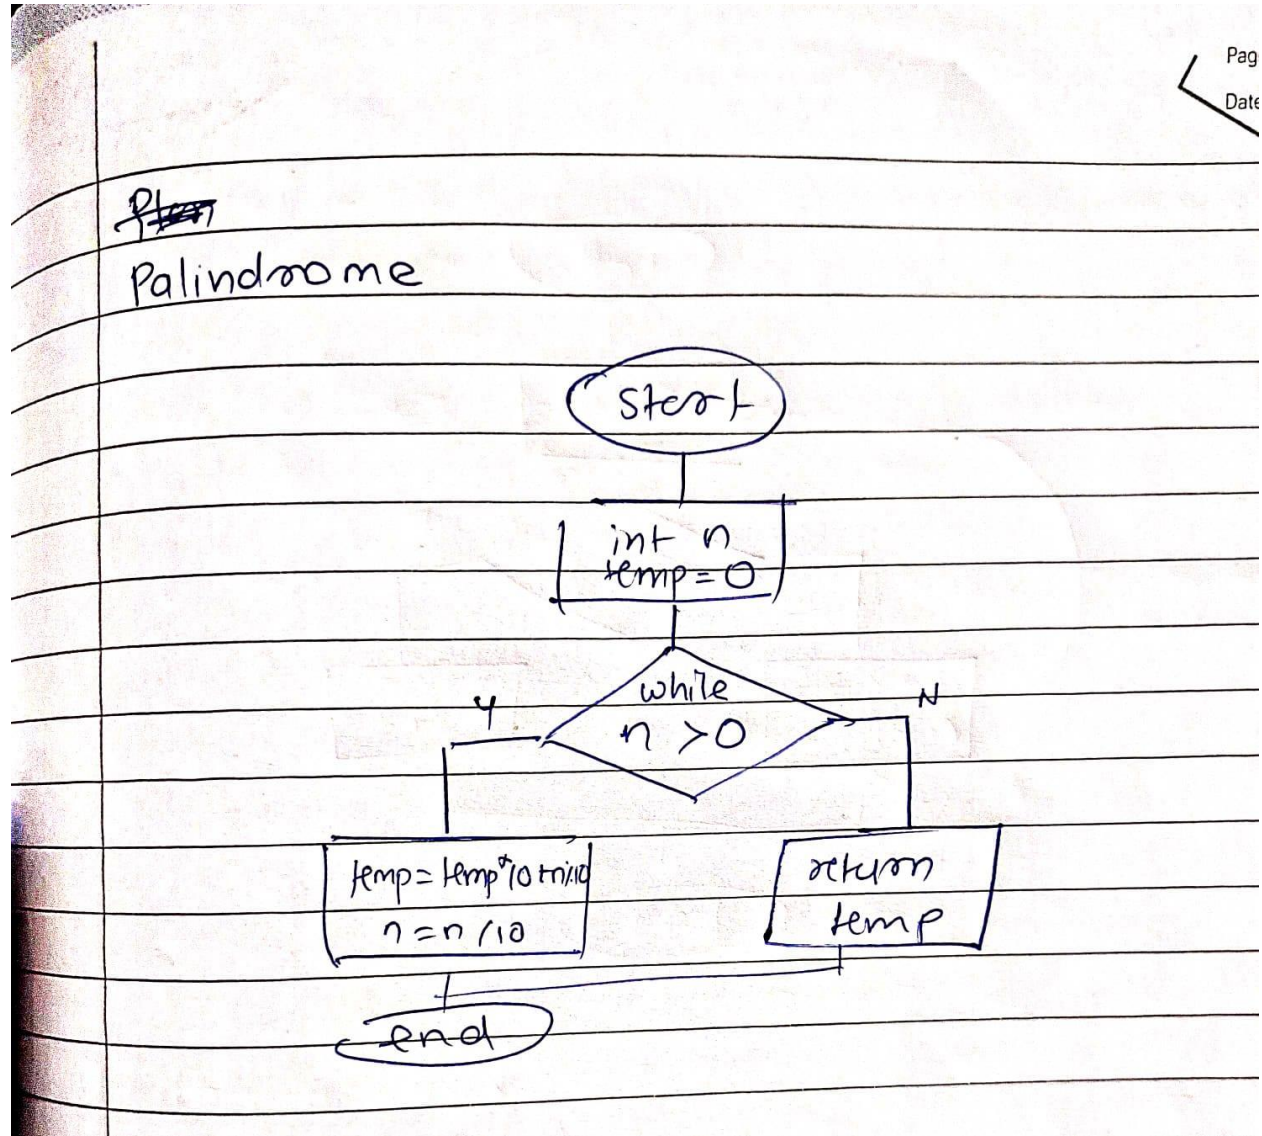 Pag
Date
Palindrome
start
int n
temp = 0
while
n > 0
Y
N
temp = temp*10 + n%10
n = n/10
return
temp
end